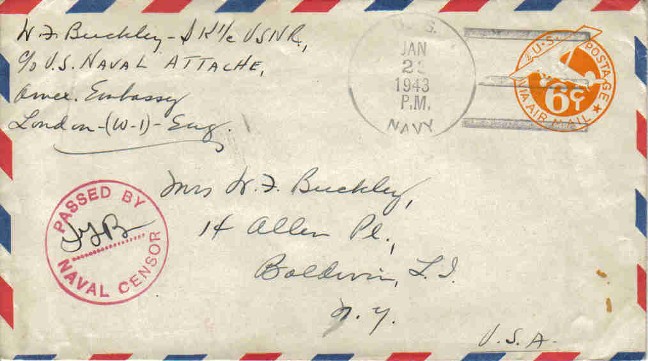 W. F. Buckley - SK1/c USNR,
c/o U.S. NAVAL ATTACHE,
Amer. Embassy
London-(W-1)-Eng.
U.S.
JAN
1943
P.M.
NAVY
U.S. POSTAGE
6¢
VIA AIR MAIL
PASSED BY
NAVAL CENSOR
Mrs W. F. Buckley,
14 Allen Pl.,
Baldwin, L.I.
N.Y.
U.S.A.